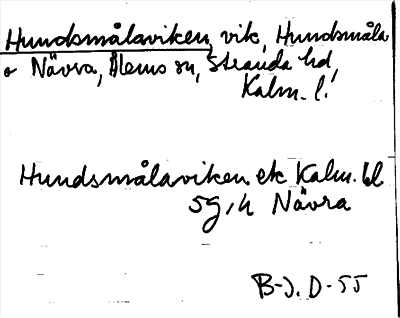 Hundsmålaviken, vik, Hundsmåla
o Nävra, Ålems sn, Stranda hd,
Kalm. l.
Hundsmålaviken ek Kalm. bl
5g, h Nävra
B-J. D-55